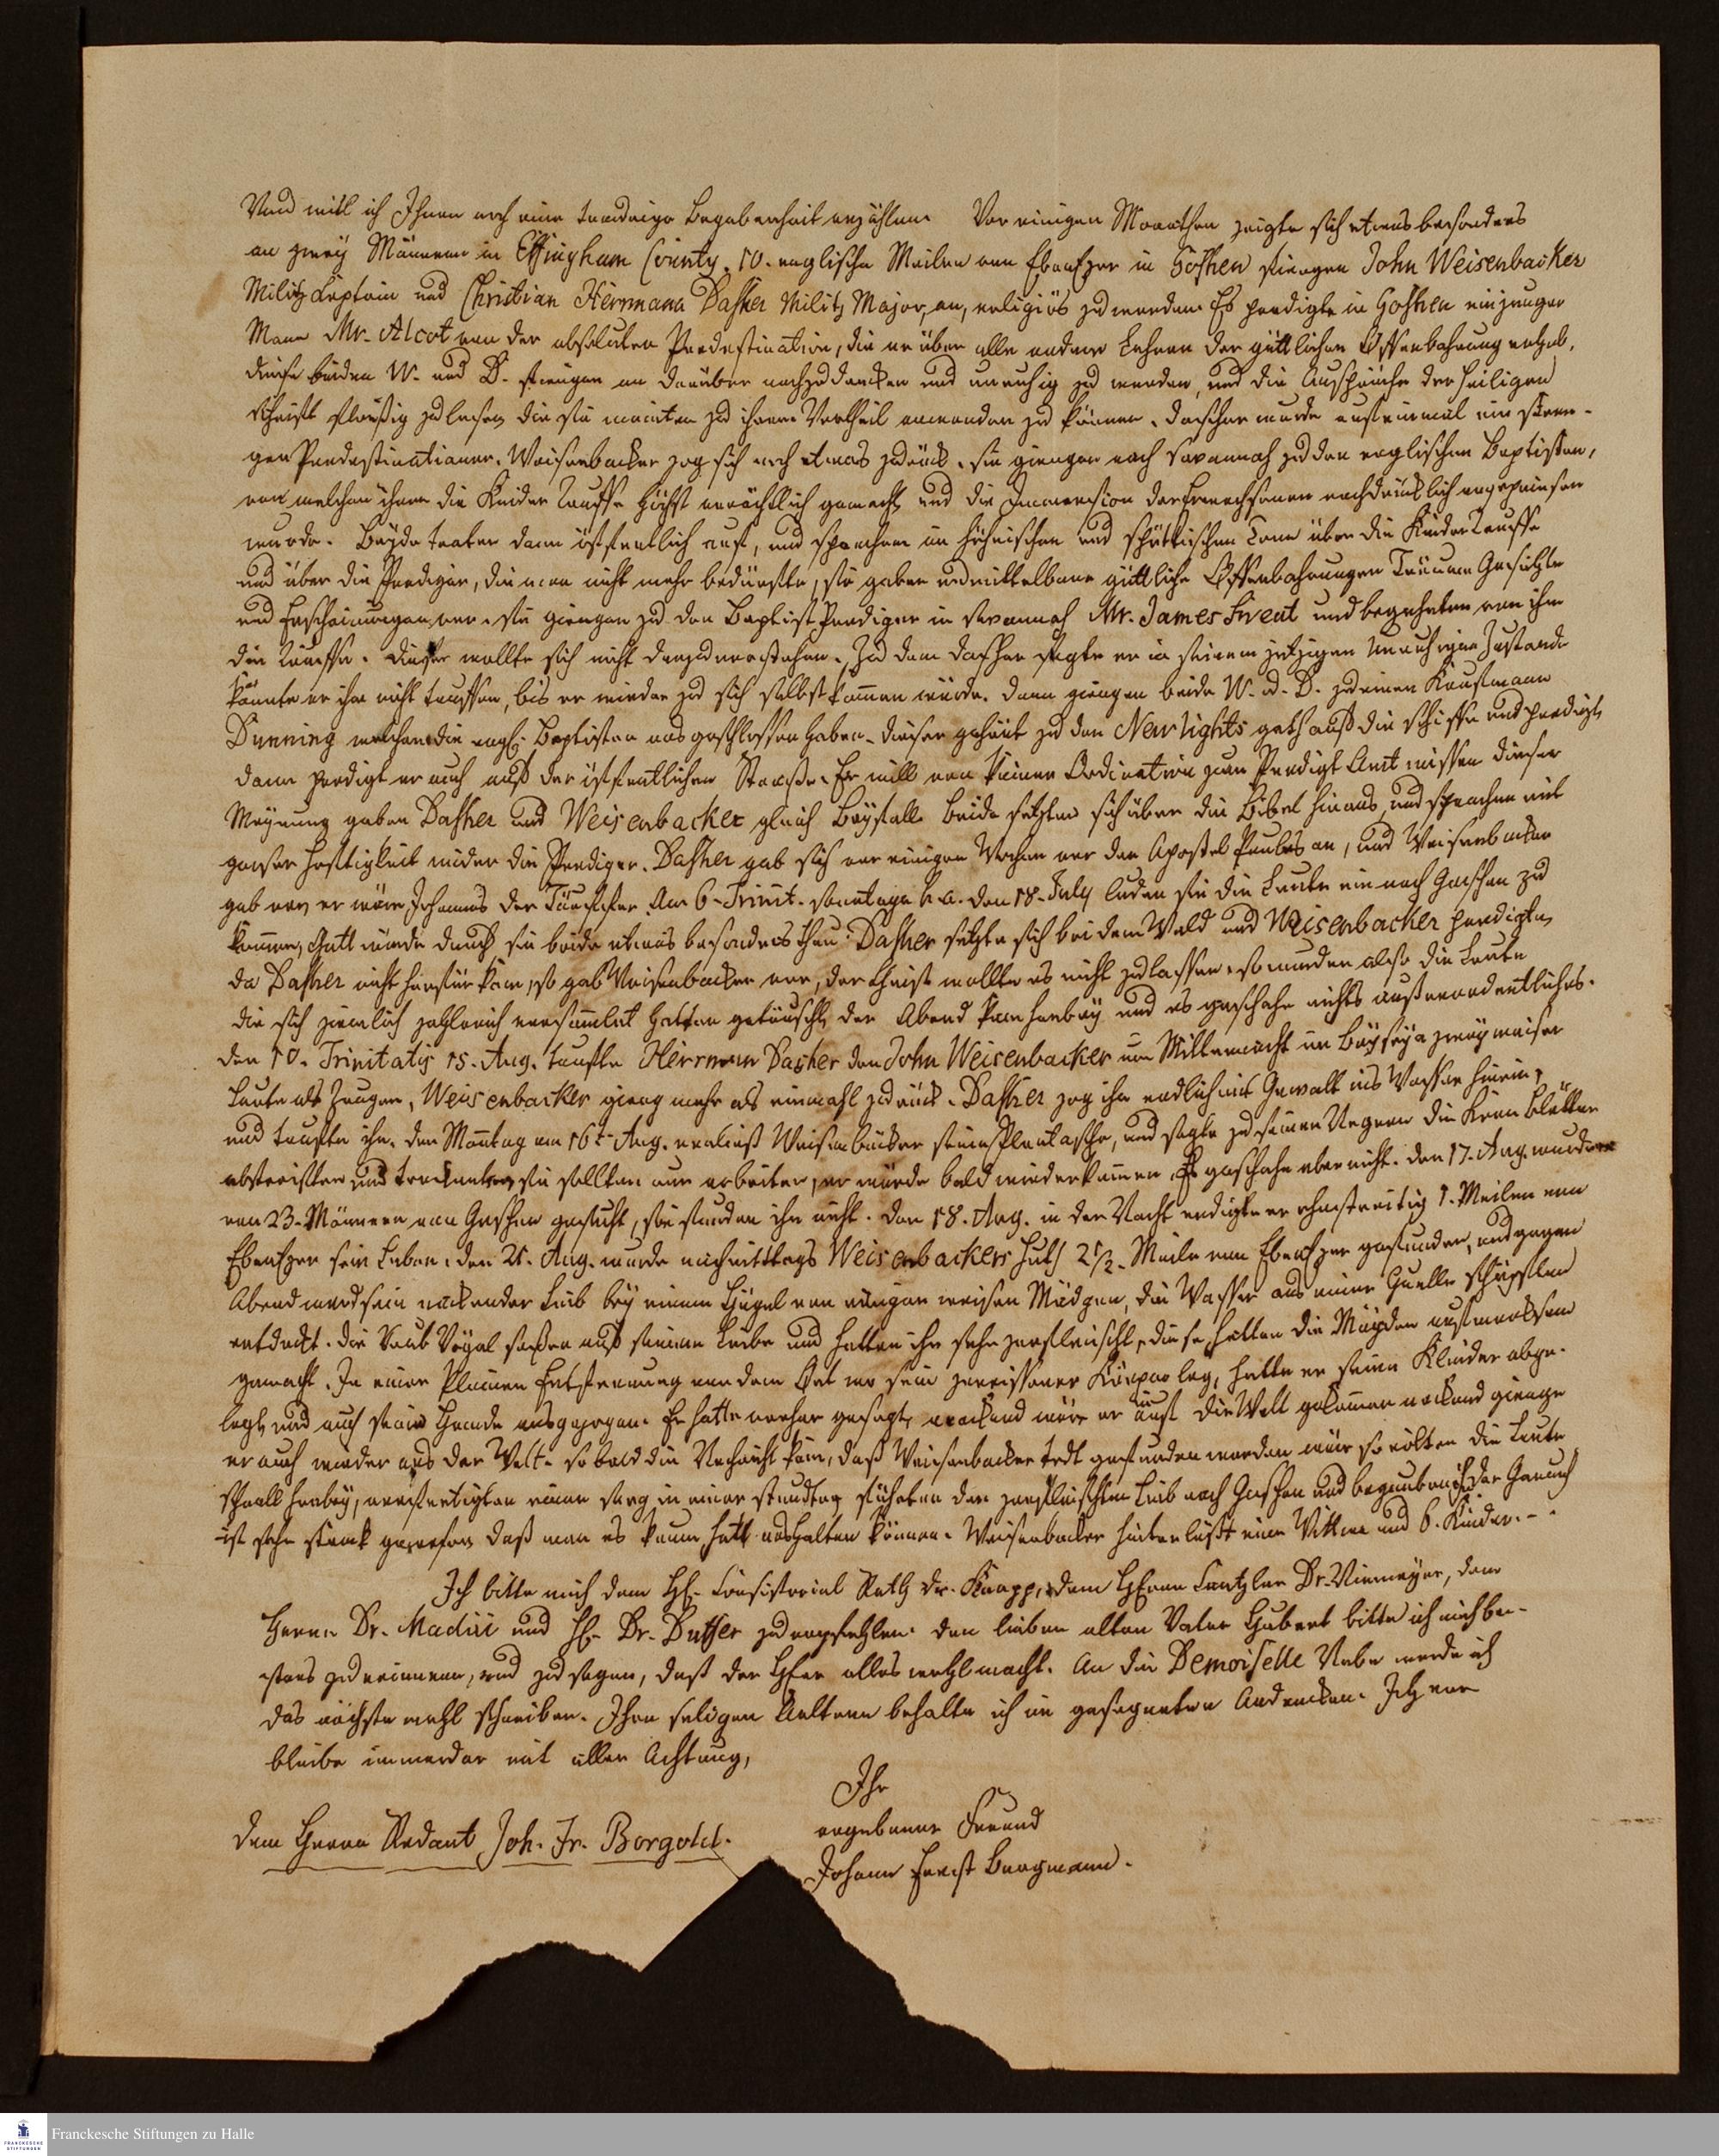 Nun will ich Ihnen noch eine traurige Begebenheit erzählen. Vor einigen Monathen zeigte sich etwas besonders
an zwey Männern in Effingham County. 10. englische Meilen von Ebenezer in Goshen fiengen John Weisenbacker
Militz Captain und Christian Herrmann Dasher Militz Major, an, religiös zu werden. Es predigte in Goshen ein junger
Mann Mr. Alcot von der absoluten Praedestination, die er über alle andere Lehren der göttlichen Offenbahrung erhob,
diese beiden W. und D. fiengen an darüber nachzudencken und unruhig zu werden, und die Aussprüche der heiligen
Schrift fleißig zu lesen, die sie meinten zu ihrem Vortheil anwenden zu können. Dascher wurde auf einmal ein stren-
ger Praedestinatianer. Weisenbacker zog sich noch etwas zurück. Sie giengen nach Savannah zu den englischen Baptisten,
von welchen ihnen die Kinder Tauffe höchst verächtlich gemacht und die Immersion der Erwachsenen nachdrücklich angepriesen
wurde. Beyde traten dann öffentlich auf, und sprachen im höhnischen und spöttischen Tone über die Kinder Tauffe
und über die Prediger, die man nicht mehr bedürfte, sie gaben unmittelbare göttliche Offenbahrungen Träume Gesichte
und Erscheinungen vor. Sie giengen zu den Baptist Prediger in Savannah Mr. James Sweat und begehrten von ihm
die Tauffe. Dieser wollte sich nicht dazu verstehen. Zu dem Dasher sagte er in seinem jetzigen unruhigen Zustande
könnte er ihn nicht tauffen, bis er wieder zu sich selbst kommen würde. Dann giengen beide W. u. D. zu einen Kaufmann
Dunning welchen die engl. Baptisten ausgeschlossen haben. Dieser gehört zu den New lights geth auf die Schiffe und predigt,
dann predigt er auch auf der öffentlichen Strasse. Er will von keiner Ordination zum Predigt Amt wissen dieser
Meynung gaben Dasher und Weisenbacker gleich Beyfall. Beide setzten sich über die Bibel hinaus, und sprachen mit
groser Heftigkeit wider die Prediger. Dasher gab sich vor einigen Wochen vor den Apostel Paulus an, und Weisenbacker
gab vor, er wäre Johannes der Täuffer. Am 6. Trinit. Sonntage h. a. den 18. July luden sie die Leute ein nach Goschen zu
kommen, Gott würde durch sie beide etwas besonders thun. Dasher setzte sich bei dem Wald und Weisenbacker predigte,
da Dasher nicht herfür kam, so gab Weisenbacker vor, der Christ wollte es nicht zulassen. So wurden also die Leute
die sich ziemlich zahlreich versammlet hatten getäuscht, der Abend kam herbey und es geschahe nichts ausserordentliches.
Den 10. Trinitatis 15. Aug. taufte Herrman Dasher den John Weisenbacker um Mitternacht im Beyseyn zwey weiser
Leute als Zeugen, Weisenbacker gieng mehr als einmahl zurück. Dasher zog ihn endlich mit Gewalt ins Wasser hinein,
und taufte ihn. Den Montag am 16t. Aug. verließ Weisenbacker seine Plantasche, und sagte zu seinen Negern die Korn Blätter
abstreiften und trockneten, sie sollten nur arbeiten, er würde bald wiederkommen. Es geschahe aber nicht. Den 17. Aug. wurde er
von 23. Männern von Goshen gesucht, sie fanden ihn nicht. Den 18. Aug. in der Nacht endigte er ohnstreitig 1. Meilen von
Ebenezer sein Leben. Den 21. Aug. wurde nachmittags Weisenbackers Huth 2 1/2. Meile von Ebenezer gefunden, und gegen
Abend ward sein nackender Leib bey einem Hügel von einigen weisen Mädgen, die Wasser aus einer Quelle schöpften
entdeckt. Die Raub Vögel saßen auf seinem Leibe und hatten ihn sehr zerfleischt, diese hatten die Mägden aufmerksam
gemacht. In einer kleinen Entfernung von dem Ort wo sein zerrissener Körper lag, hatte er seine Kleider abge-
legt, und auch sein Hemde ausgezogen. Er hatte vorher gesagt, nackend wäre er auf die Welt gekommen nackend gienge
er auch wieder aus der Welt. So bald die Nachricht kam, daß Weisenbacker todt gefunden worden wäre so eilten die Leute
schnell herbey, verfertigten einen Sarg in einer Stundten, führten den zerfleischten Leib nach Goshen und begruben ihn. Der Geruch
ist sehr stark gewesen, daß man es kaum hatt aushalten können. Weisenbacker hinterläßt eine Wittwe und 6. Kinder. –
Ich bitte mich dem H. Consistorial Rath Dr. Knapp, dem Herrn Cantzler Dr. Niemeyer, dem
Herrn Dr. Madai und H. Dr. Duffer zu empfehlen. Den lieben alten Vater Hubert bitte ich mich be-
stens zu erinnern, und zu sagen, daß der Herr alles wohl macht. An die Demoiselle Nebe werde ich
das nächste mahl schreiben. Ihre seligen Aeltern behalte ich in gesegneten Andencken. Ich ver
bleibe immerdar mit aller Achtung,
Ihr
ergebener Freund
Johann Ernst Bergmann.
Dem Herrn Rendant Joh. Fr. Borgold.
Franckesche Stiftungen zu Halle